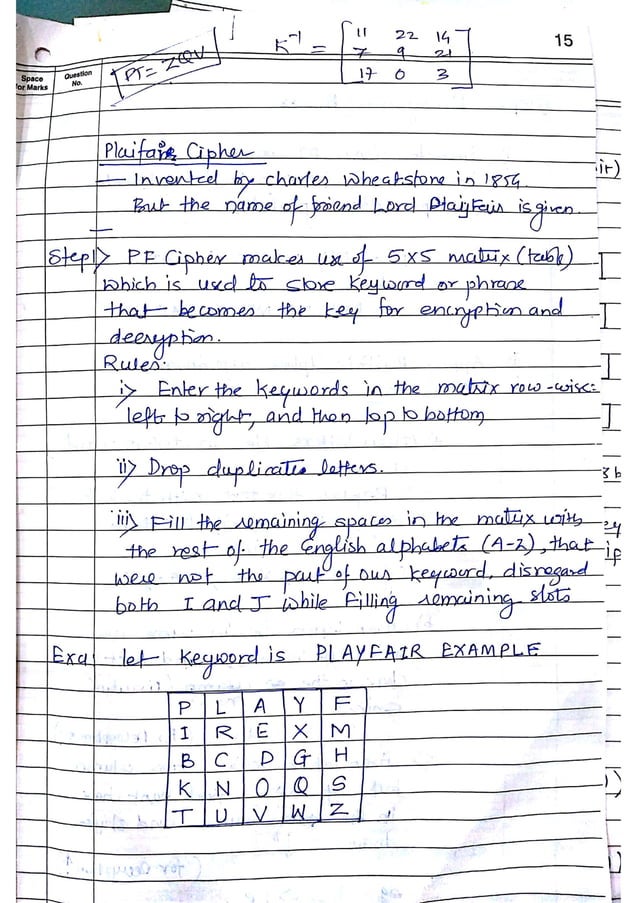 K⁻¹ = [ 11 22 14
7 9 21
17 0 3 ]
15
PT = ZQV
Space
for Marks
Question
No.
Plaifair Cipher
— Invented by charles wheatstone in 1854
But the name of friend Lord Playfair is given.
Step 1> PF Cipher makes use of 5x5 matrix (table)
which is used to store keyword or phrase
that becomes the key for encryption and
decryption.
Rules:
i> Enter the keywords in the matrix row-wise:
left to right, and then top to bottom
ii> Drop duplicate letters.
iii> Fill the remaining spaces in the matrix with
the rest of the English alphabets (A-Z), that
were not the part of our keyword, disregard
both I and J while filling remaining slots
Exa let keyword is PLAYFAIR EXAMPLE
P L A Y F
I R E X M
B C D G H
K N O Q S
T U V W Z